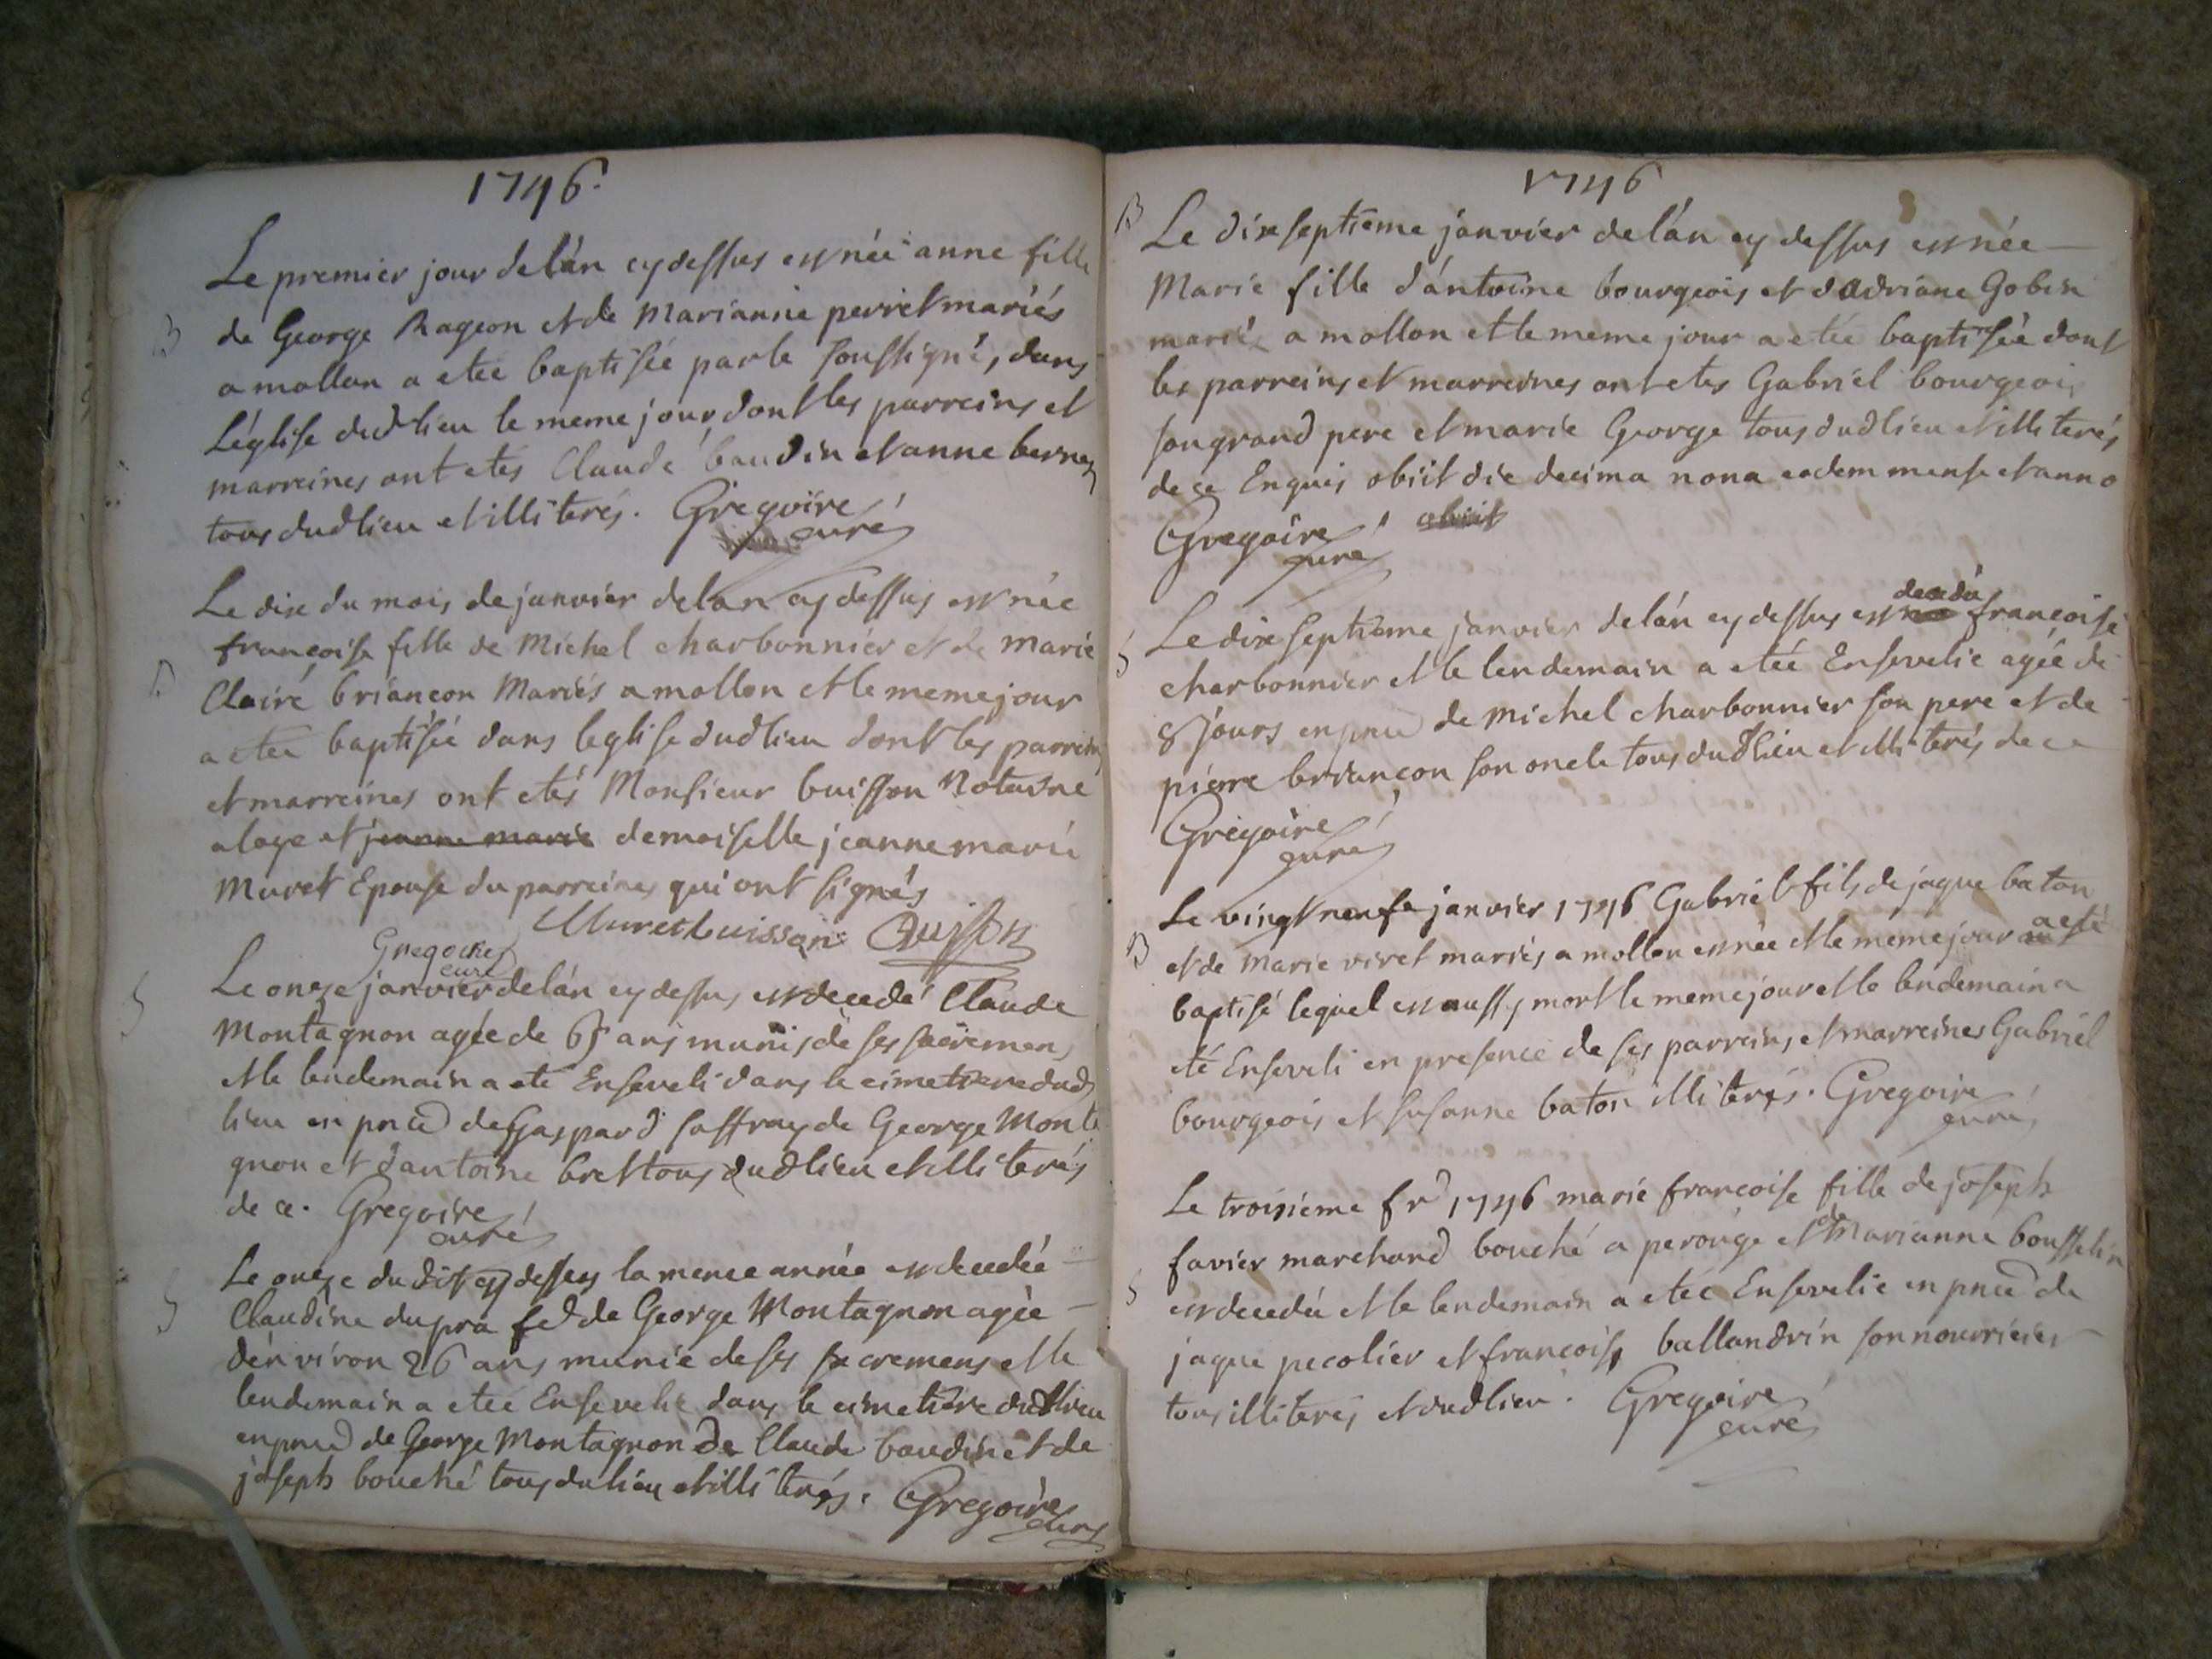 1746.
Le premier jour de lán cy dessus est née anne fille
B
de George Rageon et de Marianne perret mariés
a mollon a eteé baptiseé par le soussigné, dans
Léglise dud lieu le meme jour dont les parreins et
marreines ont etés Claude baudin et anne berney
tous dud lieu et illiterés. Gregoire
curé
Le dix du mois de janvier de lan cy dessus est née
francoise fille de Michel charbonnier et de marie
B
Claire briancon Mariés a mollon et le meme jour
a eteé baptiseé dans leglise dud lieu dont les parreins
et marreines ont etés Monsieur buisson Notaire
a loye et jeanne marie demoiselle jeanne marie
Muret Epouse du parreines qui ont signés
Muret buisson Buisson
Gregoire
curé
Le onze janvier de lán cy dessus est decedé Claude
S
Montagnon agée de 65 ans munis de ses sacremens
et le lendemain a eté Enseveli dans le cimetiere dud
lieu en pnce de Gaspard saffray de George Monta
gnon et dantoine bret tous dud lieu et illiterés
de ce. Gregoire
curé
Le onze du dit cy dessus la meme année est decedée
S
Claudine dupra fe de George Montagnon agée
dénviron 26 ans munie de ses sacremens et le
lendemain a eteé Ensevelie dans le cimetiere dud lieu
en pnce de George Montagnon de Claude baudin et de
joseph bouché tous du lieu et illiterés. Gregoire
curé
1746
B
Le dixseptieme janvier de lán cy dessus est née
Marie fille dántoine bourgeois et dadriane Gobin
mariés a mollon et le meme jour a eteé baptiseé dont
les parreins et marreines ont etes Gabriel bourgeois
son grand pere et marie George tous dud lieu et illiterés
de ce Enquis obiit die decima nona eodem mense et anno
Gregoire obiit
curé
decedé
Le dixseptieme janvier de lán cy dessus est née francoise
S
charbonnier et le lendemain a eteé Ensevelie agée de
8 jours en pnce de michel charbonnier son pere et de
pierre briancon son oncle tous dud lieu et illiterés de ce
Gregoire
curé
Le vingt neufe janvier 1746 Gabriel fils de jaque baton
B
et de Marie viret mariés a mollon est née et le meme jour a eté
baptisé lequel est aussy mort le meme jour et le lendemain a
eté Enseveli en presence de ses parreins et marreines Gabriel
bourgeois et susanne baton illiterés. Gregoire
curé
Le troisieme fr 1746 marie francoise fille de joseph
favier marchand bouché a perouge et de Marianne bousselin
S
est decedée et le lendemain a eteé Ensevelie en pnce de
jaque pecolier et francoise ballandrin son nourricier
tous illiterés et dud lieu. Gregoire
curé